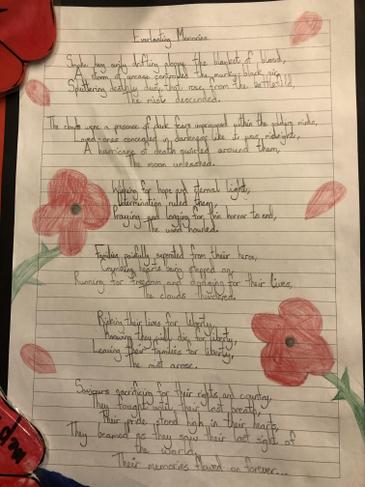 Everlasting Memories
Smoke hung drifting the blanket of blood,
A storm of unease the murky black air,
Spluttering deathly dust that rose from the battlefield,
The mist descended.
The clouds were a presence of dark fears imprisoned within the soldiers minds,
Loved-ones concealed in darkness like it was midnight,
A hurricane of death around them,
The moon unleashed.
Wishing for hope and eternal lights,
Determination ruled them,
Praying and longing for this horror to end,
The wind howled.
Families painfully separated from their heros,
hearts being stepped on,
Running for freedom and for their lives,
The clouds thundered.
Risking their lives for liberty,
Knowing they will die for liberty,
Leaving their families for liberty,
The mist arose.
Saviours sacrificing for their rights and country,
They fought until their last breath,
Their pride stood high in their hearts,
They beamed as they saw their last sight of
the world,
Their memories flowed on forever...